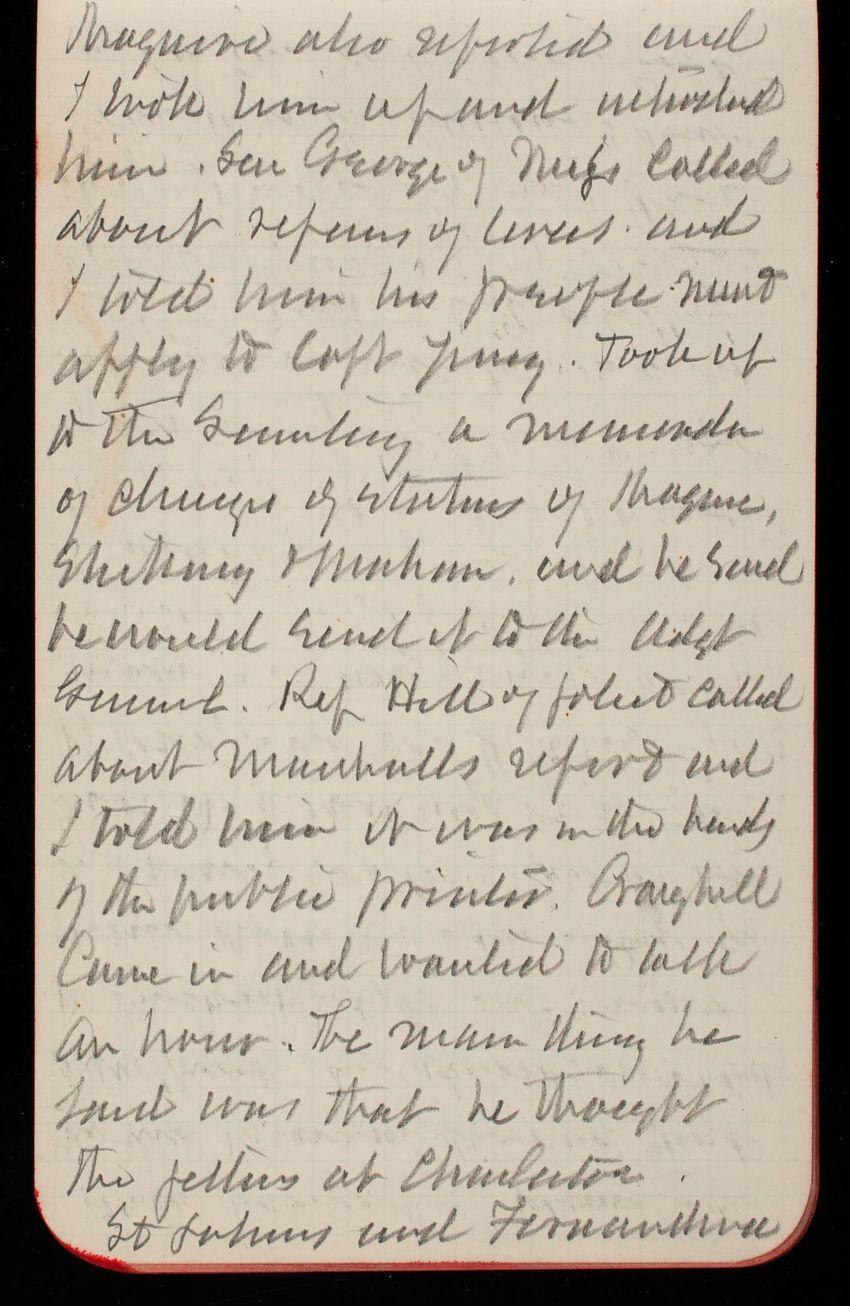 Maguire also reported and
I took him up and introduced
him. Gen George of Miss called
about repairs of levees. and
I told him his people must
apply to Capt Young. Took up
to the Secretary a memoranda
of changes of status of Maguire,
& Mahan. and he said
he would send it to the Adjt
General. Rep Hill of Joliet called
about Marshalls report and
I told him it was in the hands
of the public printer. Craighill
Came in and wanted to talk
an hour. The main thing he
said was that he thought
the jetties at Charleston.
St Johns and Fernandina